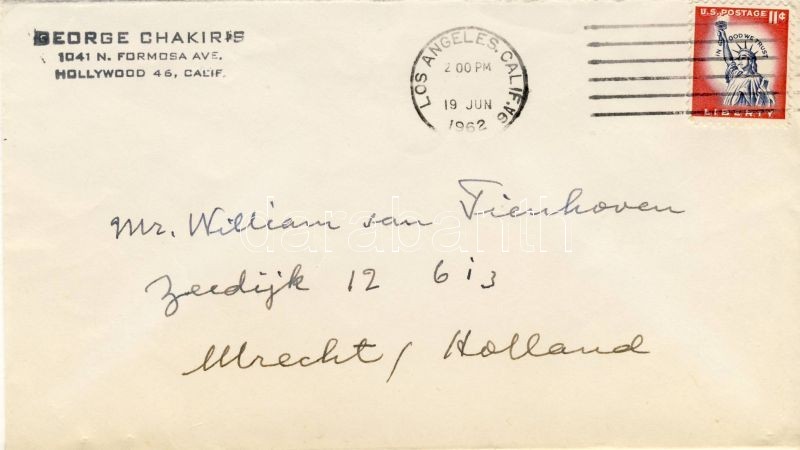 GEORGE CHAKIRIS
1041 N. FORMOSA AVE.
HOLLYWOOD 46, CALIF.
LOS ANGELES, CALIF.
2 00 PM
19 JUN
1962
U.S. POSTAGE 11¢
IN GOD WE TRUST
LIBERTY
Mr. William van Tienhoven
Zeedijk 12 6is
Utrecht / Holland
darabanth